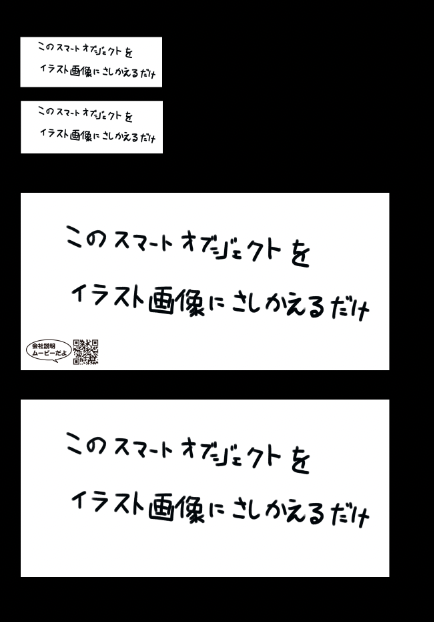 このスマートオブジェクトを
イラスト画像にさしかえるだけ
このスマートオブジェクトを
イラスト画像にさしかえるだけ
このスマートオブジェクトを
イラスト画像にさしかえるだけ
会社説明
ムービーだよ
このスマートオブジェクトを
イラスト画像にさしかえるだけ